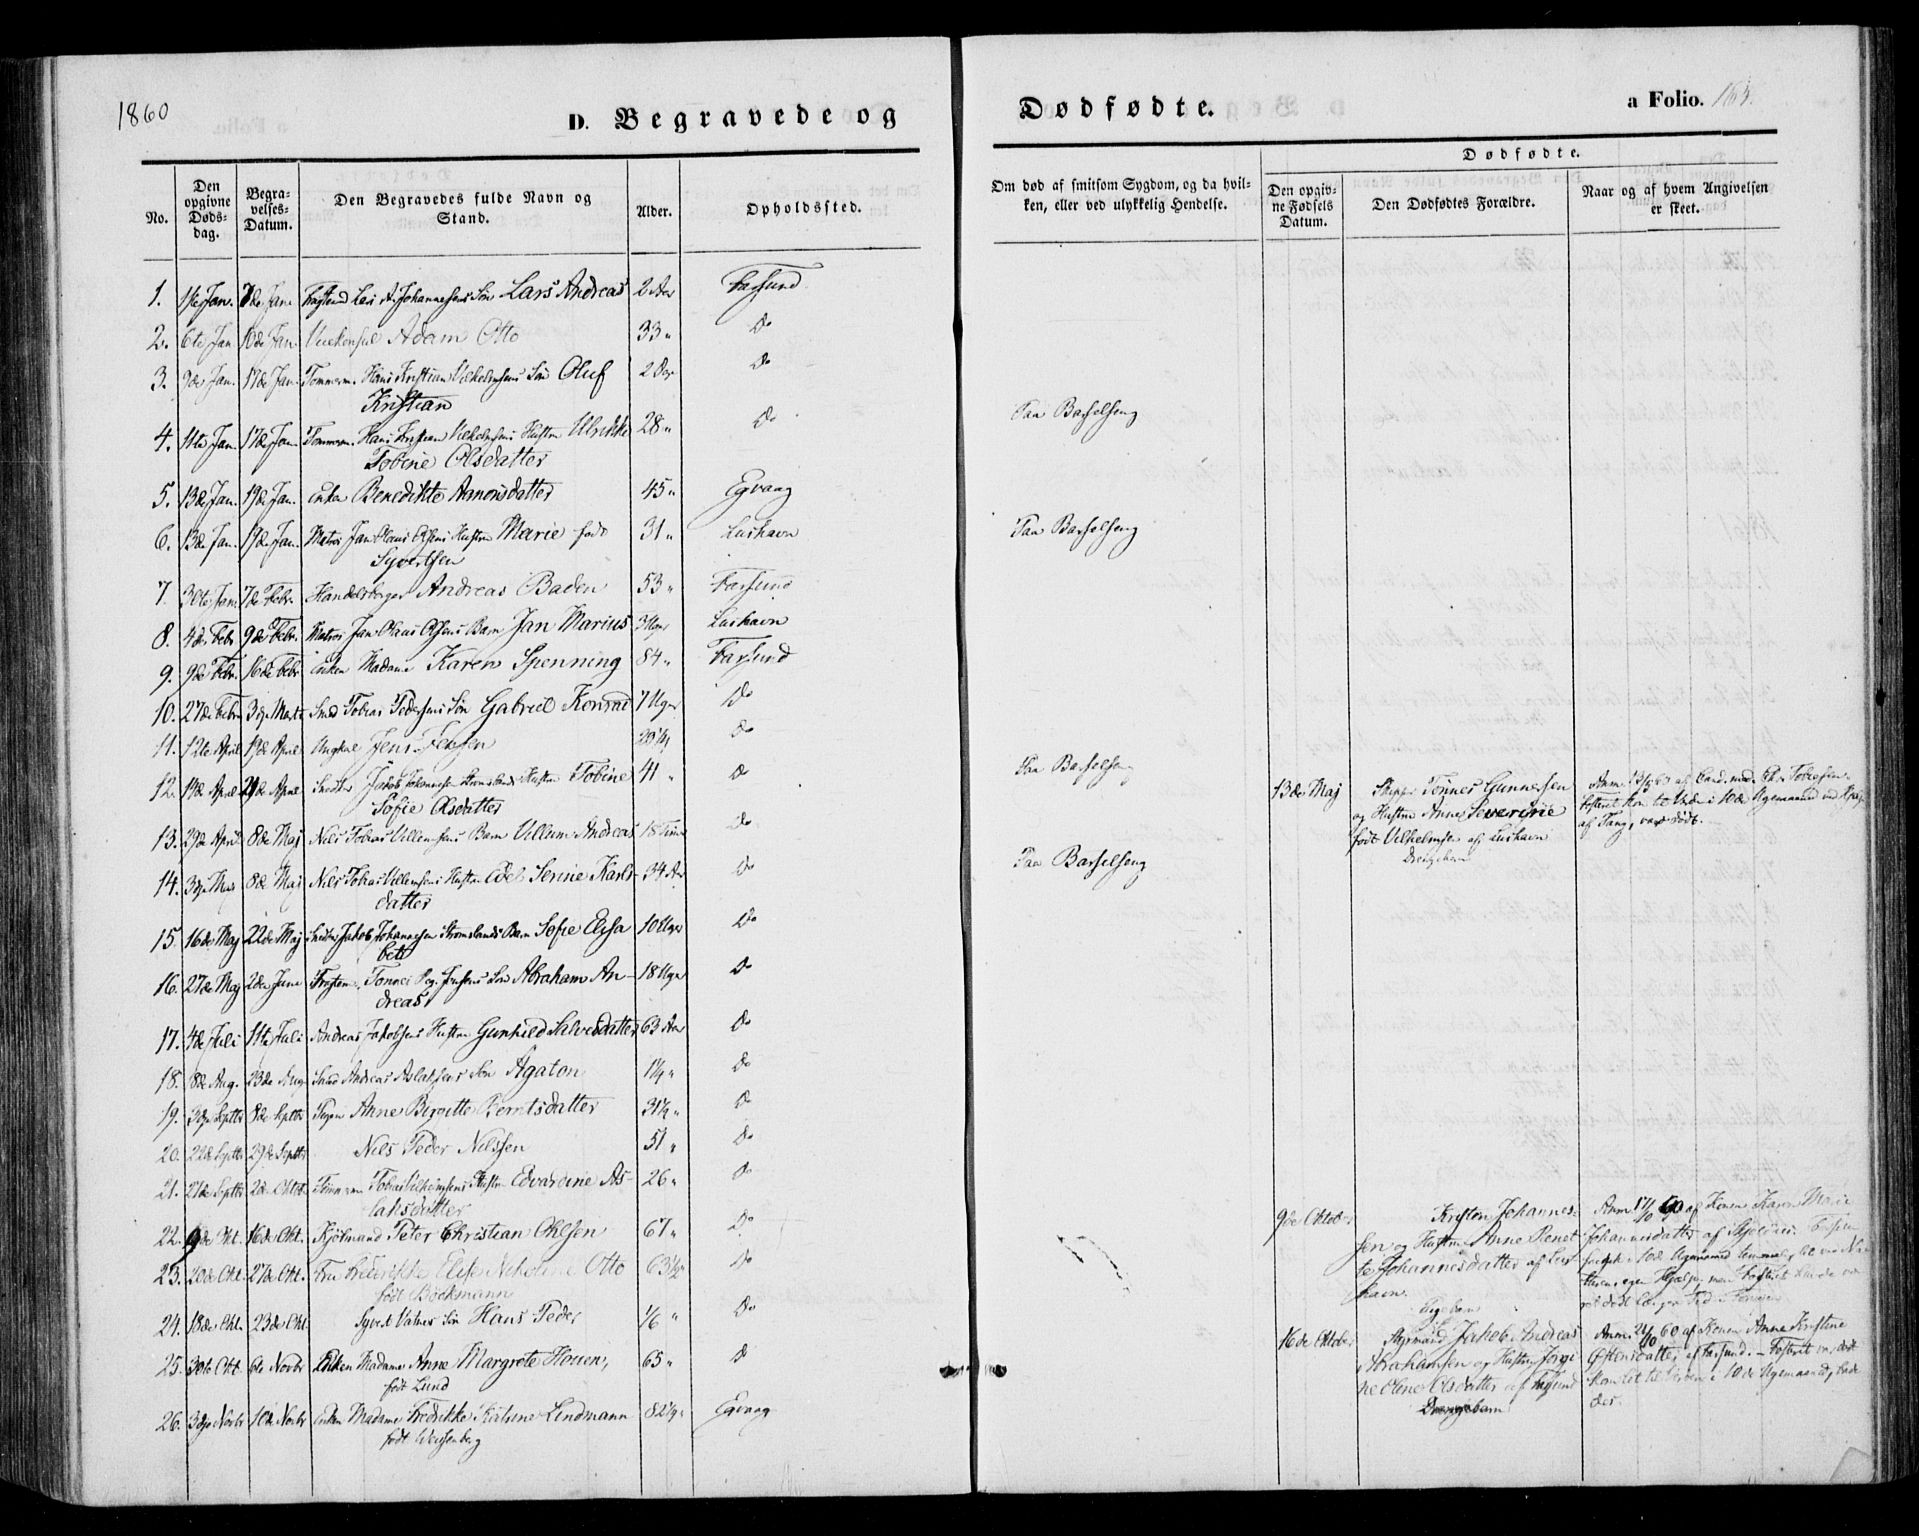 1860
D. Begravede og
Dødfødte.
a Folio. 165.
No.
Den opgivne Døds-dag.
Begra-velses-Datum.
Den Begravedes fulde Navn og Stand.
Alder.
Opholdssted.
Om død af smitsom Sygdom, og da hvil-ken, eller ved ulykkelig Hendelse.
Dødfødte.
Den opgiv-ne Fødsels Datum.
Den Dødfødtes Forældre.
Naar og af hvem Angivelsen er skeet.
1. 1ste Jan. 7de Jan. Johannesens Søn Lars Andreas 2 Aar Farsund
2. 6te Jan. 10de Jan. Vicekonsul Adam Otto 33 " Do
3. 9de Jan. 17de Jan. Tømmerm. Hans Kristian Vilhelmsens Søn Oluf 2 Do
Kristian
4. 11te Jan. 17de Jan. Tømmerm. Hans Kristian Vilhelmsens Hustru Ulrikke 28 " Do Paa Barselseng
Tobine Olsdatter
5. 13de Jan. 19de Jan. Enke Benedikte Aanonsdatter 45 " Egvaag
6. 13de Jan. 19de Jan. Matros Jan Olaus Olsens Hustru Marie født 31 " Lushavn Paa Barselseng
Syvertsen
7. 30te Jan. 7de Febr. Handelsborger Andreas Baden 53 " Farsund
8. 4de Febr. 9de Febr. Matros Jan Olaus Olsens Barn Jan Marius 3 Uger Lushavn
9. 9de Febr. 16de Febr. Enken Madame Karen Spenning 84 " Farsund
10. 27de Febr. 3die Marts Smed Tobias Pedersens Søn Gabriel Konrad 7 Uger Do
11. 12te April 19de April Ungkarl Jens Jensen Do
12. 14de April 21de April Jakob Johannesen Strømslands Hustru Tobine 41 " Do Paa Barselseng
Sofie Olsdatter
13de Maj Skipper Tønnes Gunnersen
og Hustru Anne Severine
født Vilhelmsen af Lushavn
Drengebarn
13. 29de April 8de Maj Nils Tobias Villumsens Barn Villum Andreas 18 Timer Do
14. 3die Maj 8de Maj Nils Tobias Villumsens Hustru Edel Serine Karls- 34 Aar Do Paa Barselseng
datter
15. 16de Maj 22de Maj Jakob Johannesen Strømslands Barn Sofie Elisa 10 Uger Do
beth
16. 27de Maj 2den Juni Tønnes Jensens Søn Abraham An- 18 Uger Do
dreas
17. 4de Juli 11te Juli Andreas Jakobsens Hustru Gunhild Salvesdatter 63 Aar Do
18. 8de Aug. 23de Aug. Smed Andreas Aslaksens Søn Agaton 1¼ " Do
19. 3die Septbr 8de Septbr Pigen Anne Birgitte Berntsdatter 31½ " Do
20. 22de Septbr 29de Septbr Nils Peder Nilssen 51 " Do
21. 27de Septbr 2de Oktob. Tømmerm Tobias Vilhelmsens Hustru Edvardine As- 26 " Do
laksdatter
22. 9de Okt. 16de Okt. Kjøbmand Peter Christian Ohlsen 67 " Do
9de Oktober Kristen Johannes-
sen og Hustru Anne Renet-
te Johannesdatter af Lus-
havn.
Pigebarn
Anm. 17/10 60 af Konen Karen Marie
Johannesdatter af
23. 20de Okt. 27de Okt. Fru Frederikke Elise Nicholine Otto 63½ " Do
født Bøckmann
24. 18de Okt. 23de Okt. Syvert Vatnes Søn Hans Peder 1/6 " Do
16de Oktober Styrmand Jakob Andreas
Abrahamsen og Hustru Jørgi-
ne Oline Olsdatter af Farsund
Drengebarn
Anm. 21/10 60 af Konen Anne Kristine
Østensdatter af Farsund. - Fosteret var dødt
kom let til Verden i 10de Ugemaaned,
25. 30te Okt. 6te Novbr Enken Madame Anne Margrete Houen, 65 " Do
født Lund
26. 3die Novbr 10de Novbr Enken Madame Fredrikke Katrine Lindmann 82½ " Egvaag
født Weissenberg